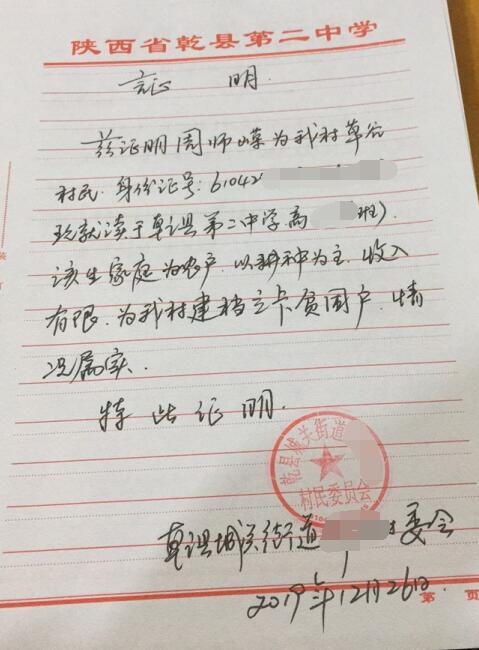 陕西省乾县第二中学
证 明
兹证明周师嵘为我村草谷
村民.身份证号:61042
现就读于乾县第二中学高 班).
该生家庭为农户,以耕种为主,收入
有限,为我村建档立卡贫困户,情
况属实.
特 此 证 明.
乾县城关街道
村民委员会
乾县城关街道 村委会
2019年12月26日
第 页